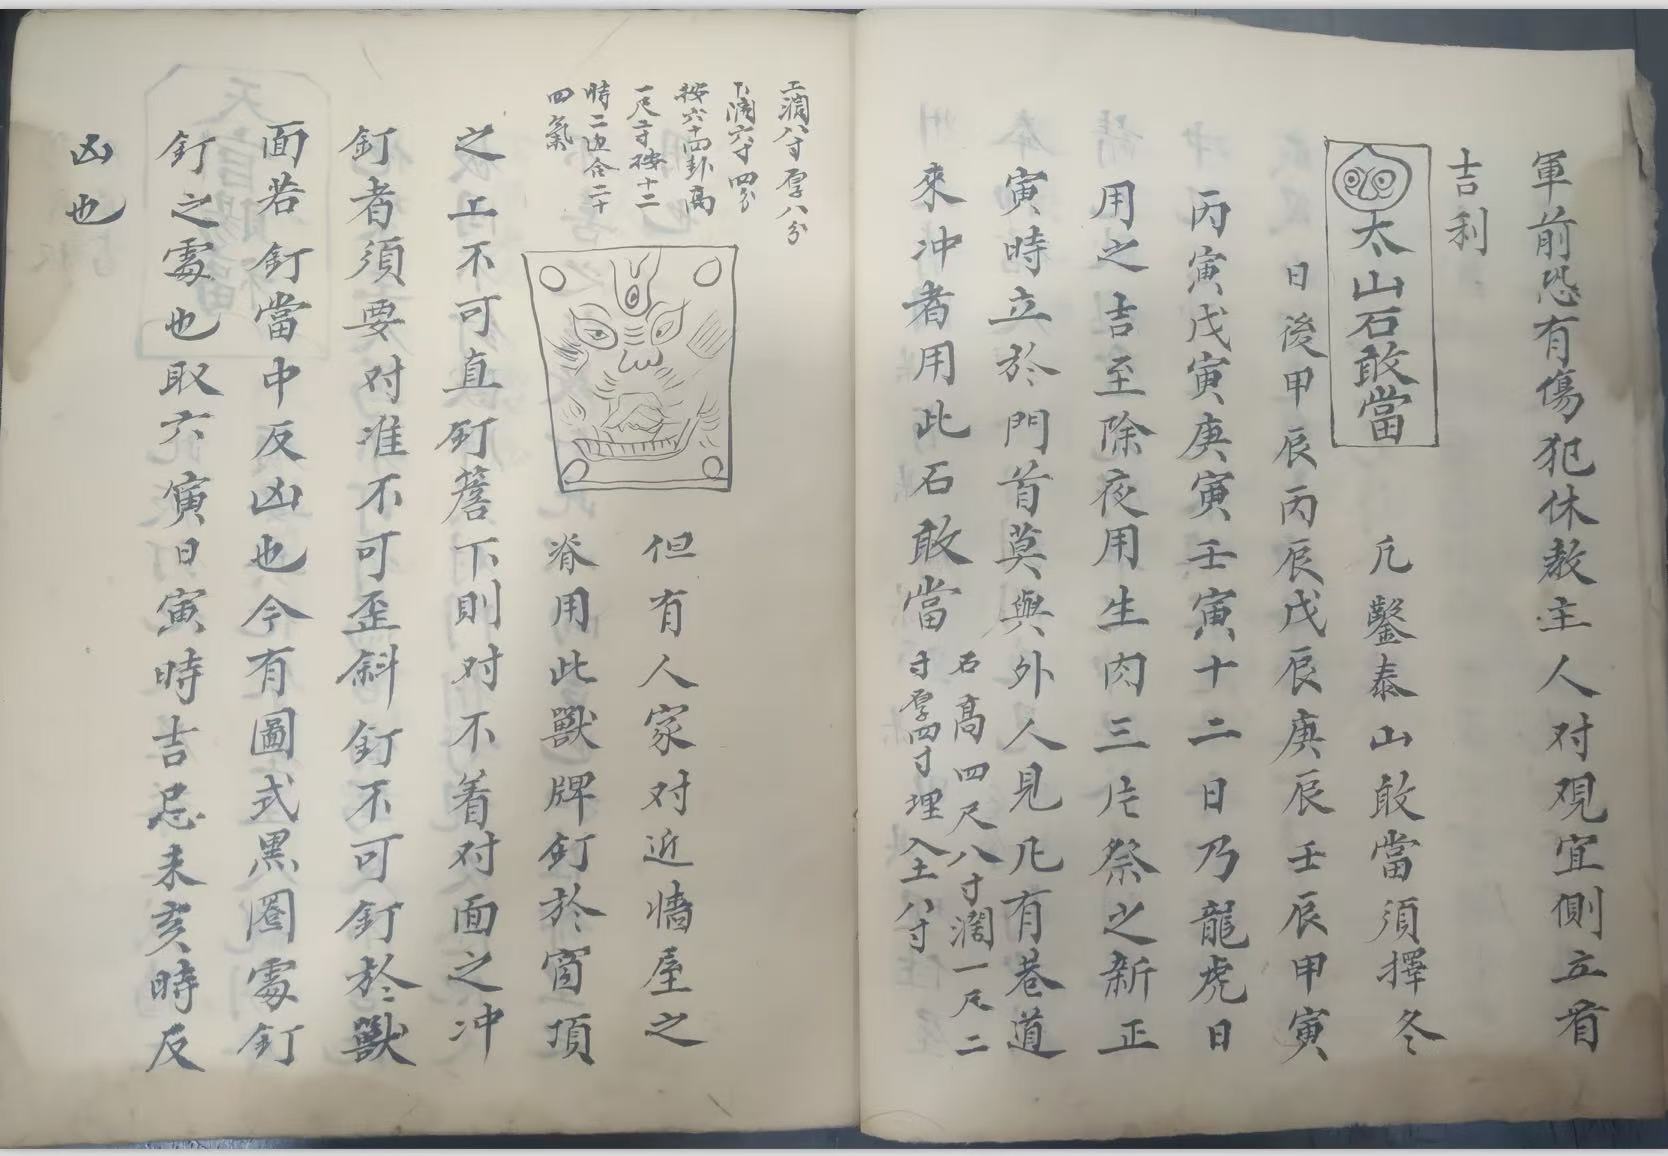 軍前恐有傷犯休教主人对覌宜側立看
吉利
太山石敢當
凡鑿泰山敢當須擇冬
日後甲辰丙辰戊辰庚辰壬辰甲寅
丙寅戊寅庚寅壬寅十二日乃龍虎日
用之吉至除夜用生肉三片祭之新正
寅時立於門首莫與外人見凡有巷道
來冲者用此石敢當
石高四尺八寸濶一尺二
寸厚四寸埋入土八寸
工濶八寸厚八分
下濶六寸四分
按六十四卦高
一尺二寸按十二
時二边合二十
四氣
但有人家对近墻屋之
脊用此獸牌釘於窗項
之上不可真釘簷下則对不着对面之冲
釘者須要对准不可歪斜釘不可釘於獸
面若釘當中反凶也今有圖式黑圈處釘
釘之處也取六寅日寅時吉忌未亥時反
凶也